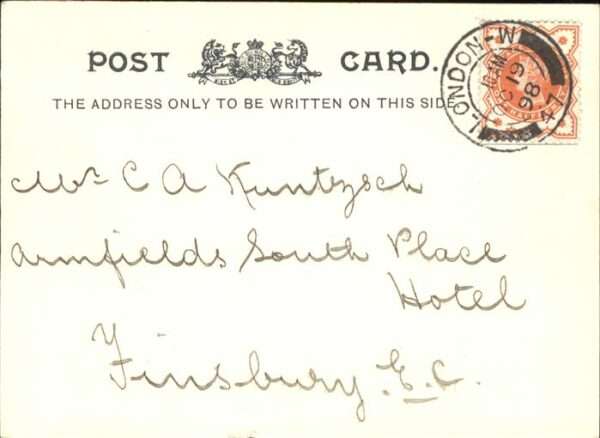 POST CARD.
THE ADDRESS ONLY TO BE WRITTEN ON THIS SIDE
LONDON-W
19
98
47
Mr C A Kuntzsch
Armfields South Place
Hotel
Finsbury. E.C.